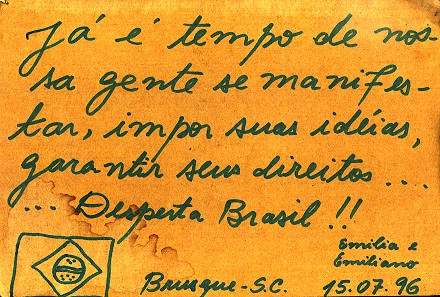 Já é tempo de nos-
sa gente se manifes-
tar, impor suas idéias,
garantir seus direitos....
... Desperta Brasil!!
Emilia e
Emiliano
Brusque - S.C. 15.07.96